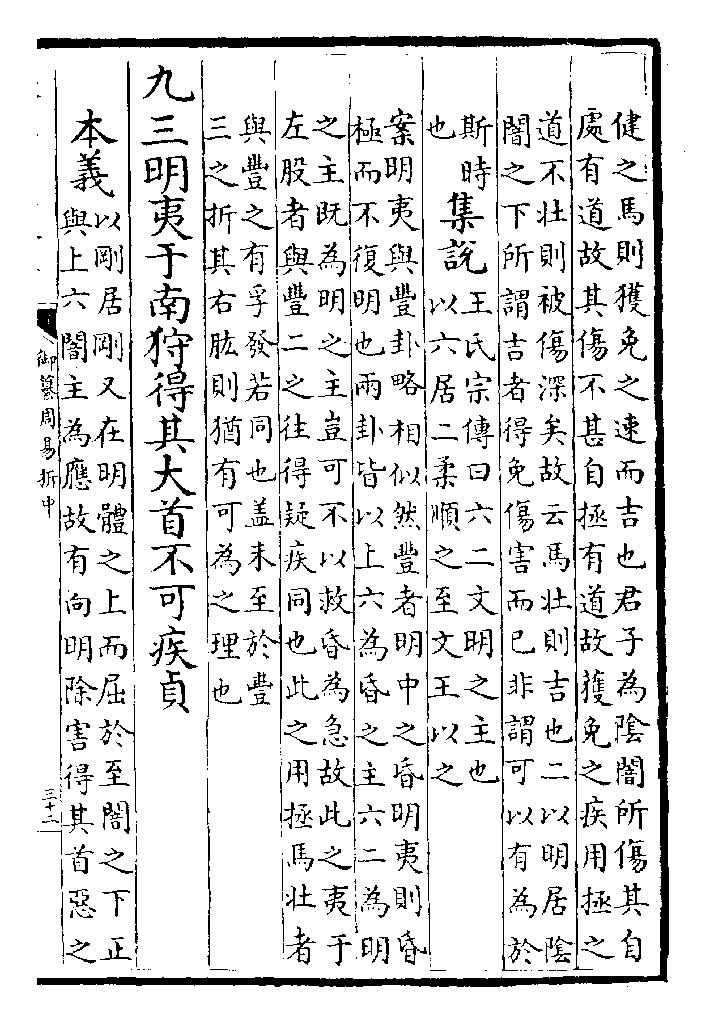 健之馬則獲免之速而吉也君子為陰闇所傷其自
處有道故其傷不甚自拯有道故獲免之疾用拯之
道不壯則被傷深矣故云馬壯則吉也二以明居陰
闇之下所謂吉者得免傷害而已非謂可以有為於
斯時
也
集説
王氏宗傳曰六二文明之主也
以六居二柔順之至文王以之
案明夷與豐卦略相似然豐者明中之昏明夷則昏
極而不復明也兩卦皆以上六為昏之主六二為明
之主既為明之主豈可不以救昏為急故此之夷于
左股者與豐二之往得疑疾同也此之用拯馬壯者
與豐之有孚發若同也盖未至於豐
三之折其右肱則猶有可為之理也
九三明夷于南狩得其大首不可疾貞
本義
以剛居剛又在明體之上而屈於至闇之下正
與上六闇主為應故有向明除害得其首惡之
御纂周易折中
三十二